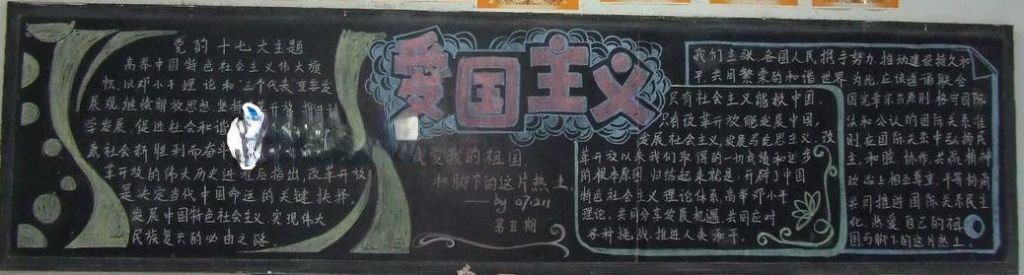 党的十七大主题
高举中国特色社会主义伟大旗
帜,以邓小平理论和"三个代表"重要发
展观,继续解放思想,坚持改革开放,推
学发展,促进社会和谐
社会新胜利而奋斗
革开放的伟大历史进程后指出,改革开放
是决定当代中国命运的关键抉择,
发展中国特色社会主义、实现伟大
民族复兴的必由之路。
爱国主义
我爱我的祖国,
和脚下的这片热土.
——by 07.211
第Ⅱ期
只有社会主义能救中国,
只有改革开放能发展中国,
发展社会主义、发展马克思主义,改
革开放以来我们取得的一切成绩和进步
的根本原因,归结起来就是:开辟了中国
特色社会主义理论体系,高举邓小平
理论,共同分享发展机遇,共同应对
各种挑战,推进人类和平。
我们主张,各国人民携手努力,推动建设持久和
平、共同繁荣的和谐世界.为此,应该遵循联合
国宪章宗旨原则,恪守国际
法和公认的国际关系准
则,在国际关系中弘扬民
主、和睦、协作、共赢精神
政治上相互尊重、平等协商
共同推进国际关系民主
化.热爱自己的祖
国与脚下的这片热土。